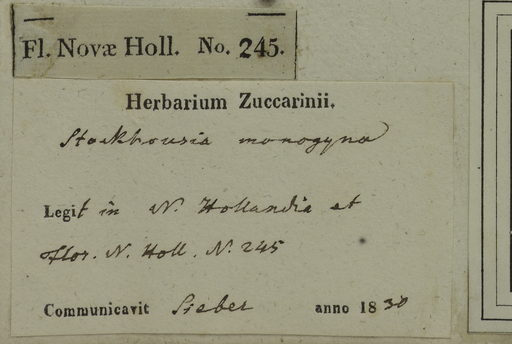 Fl. Novæ Holl. No. 245.
Herbarium Zuccarinii.
Stackhousia monogyna
Legit in N. Hollandia et
Flor. N. Holl. N. 245
Communicavit Sieber anno 1830